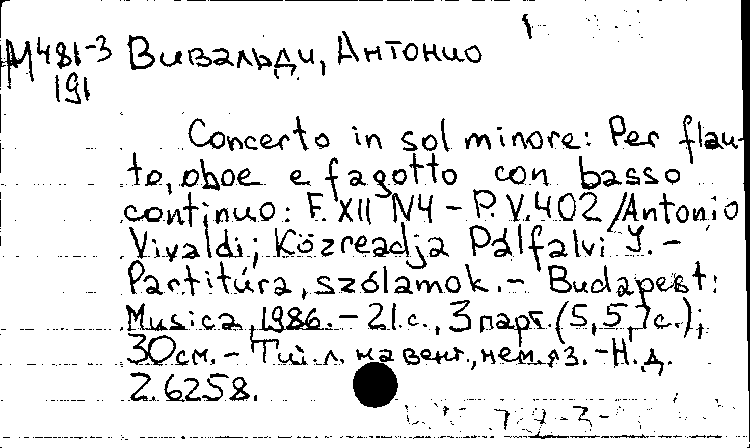 М481-3 Вивальди, Антонио
191
Concerto in sol minore: Per flau-
to, oboe e fagotto con basso
continuo: F. XII N4 - P. V. 402 / Antonio
Vivaldi; Közreadja Pálfalvi J. -
Partitúra, szólamok. - Budapest:
Musica, 1986. - 21 с., 3 парт. (5, 5, 7 с.);
30 см. - Тит. л. на венг., нем. яз. - Н. д.
Z. 6258.